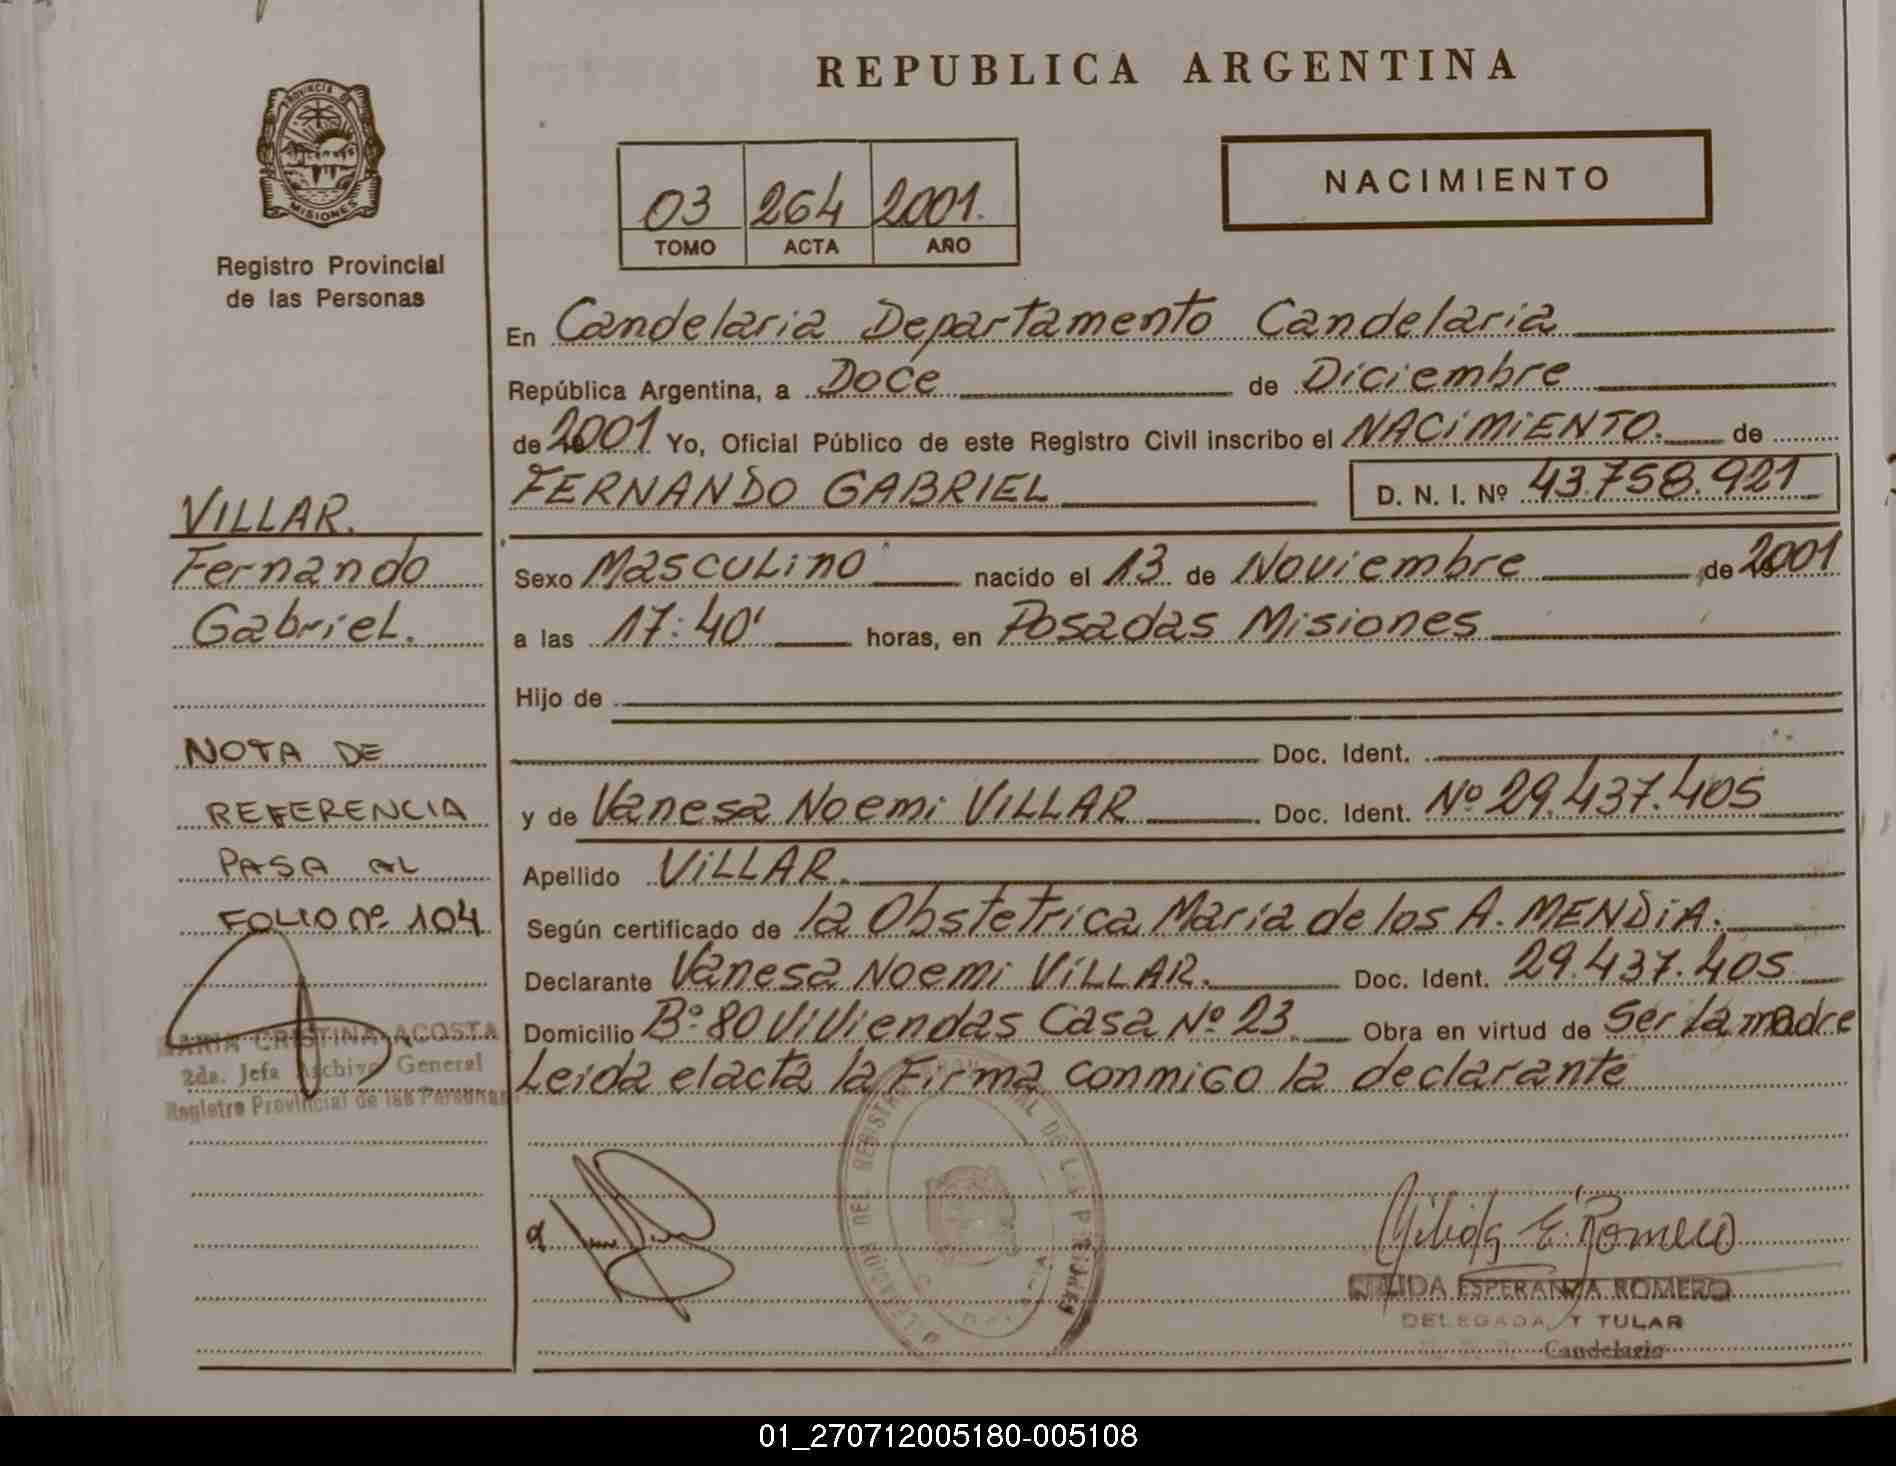 REPUBLICA ARGENTINA
PROVINCIA DE
MISIONES
Registro Provincial
de las Personas
03 264 2001.
TOMO ACTA AÑO
NACIMIENTO
En Candelaria Departamento Candelaria
República Argentina, a Doce de Diciembre
de 2001 Yo, Oficial Público de este Registro Civil inscribo el NACIMIENTO. de
FERNANDO GABRIEL D. N. I. Nº 43.758.921
Sexo Masculino nacido el 13 de Noviembre de 2001
a las 17:40' horas, en Posadas Misiones
Hijo de
Doc. Ident.
y de Vanesa Noemi VILLAR Doc. Ident. Nº 29.437.405
Apellido VILLAR.
Según certificado de la Obstetrica Maria de los A. MENDIA.
Declarante Vanesa Noemi VILLAR. Doc. Ident. 29.437.405
Domicilio Bº 80 Viviendas Casa Nº 23 Obra en virtud de Ser la madre
Leida el acta la Firma conmigo la declarante
VILLAR.
Fernando
Gabriel.
NOTA DE
REFERENCIA
PASA AL
FOLIO Nº 104
MARIA CRISTINA ACOSTA
2da. Jefa Archivo General
Registro Provincial de las Personas
E. Romero
ESPERANZA ROMERO
DELEGADA TITULAR
Candelaria
01_270712005180-005108